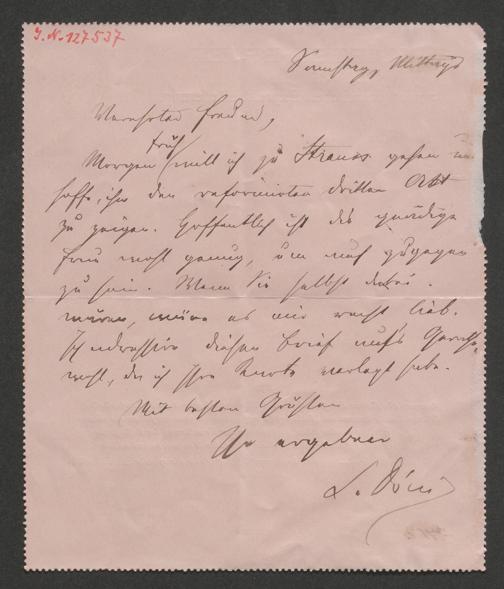 I.N. 127537
Samstag, Mittags
Verehrter Freund,
früh
Morgen will ich zu Strauss gehen u
hoffe, ihm den reformirten dritten Akt
zu zeigen. Hoffentlich ist die gnädige
Frau wohl genug, um auch zugegen
zu sein. Wenn Sie selbst dabei
wären, wäre es mir recht lieb.
Ich adressire diesen Brief aufs
wohl, da ich Ihre Karte verlegt habe.
Mit besten Grüßen
Ihr ergebener
L. Dóczi